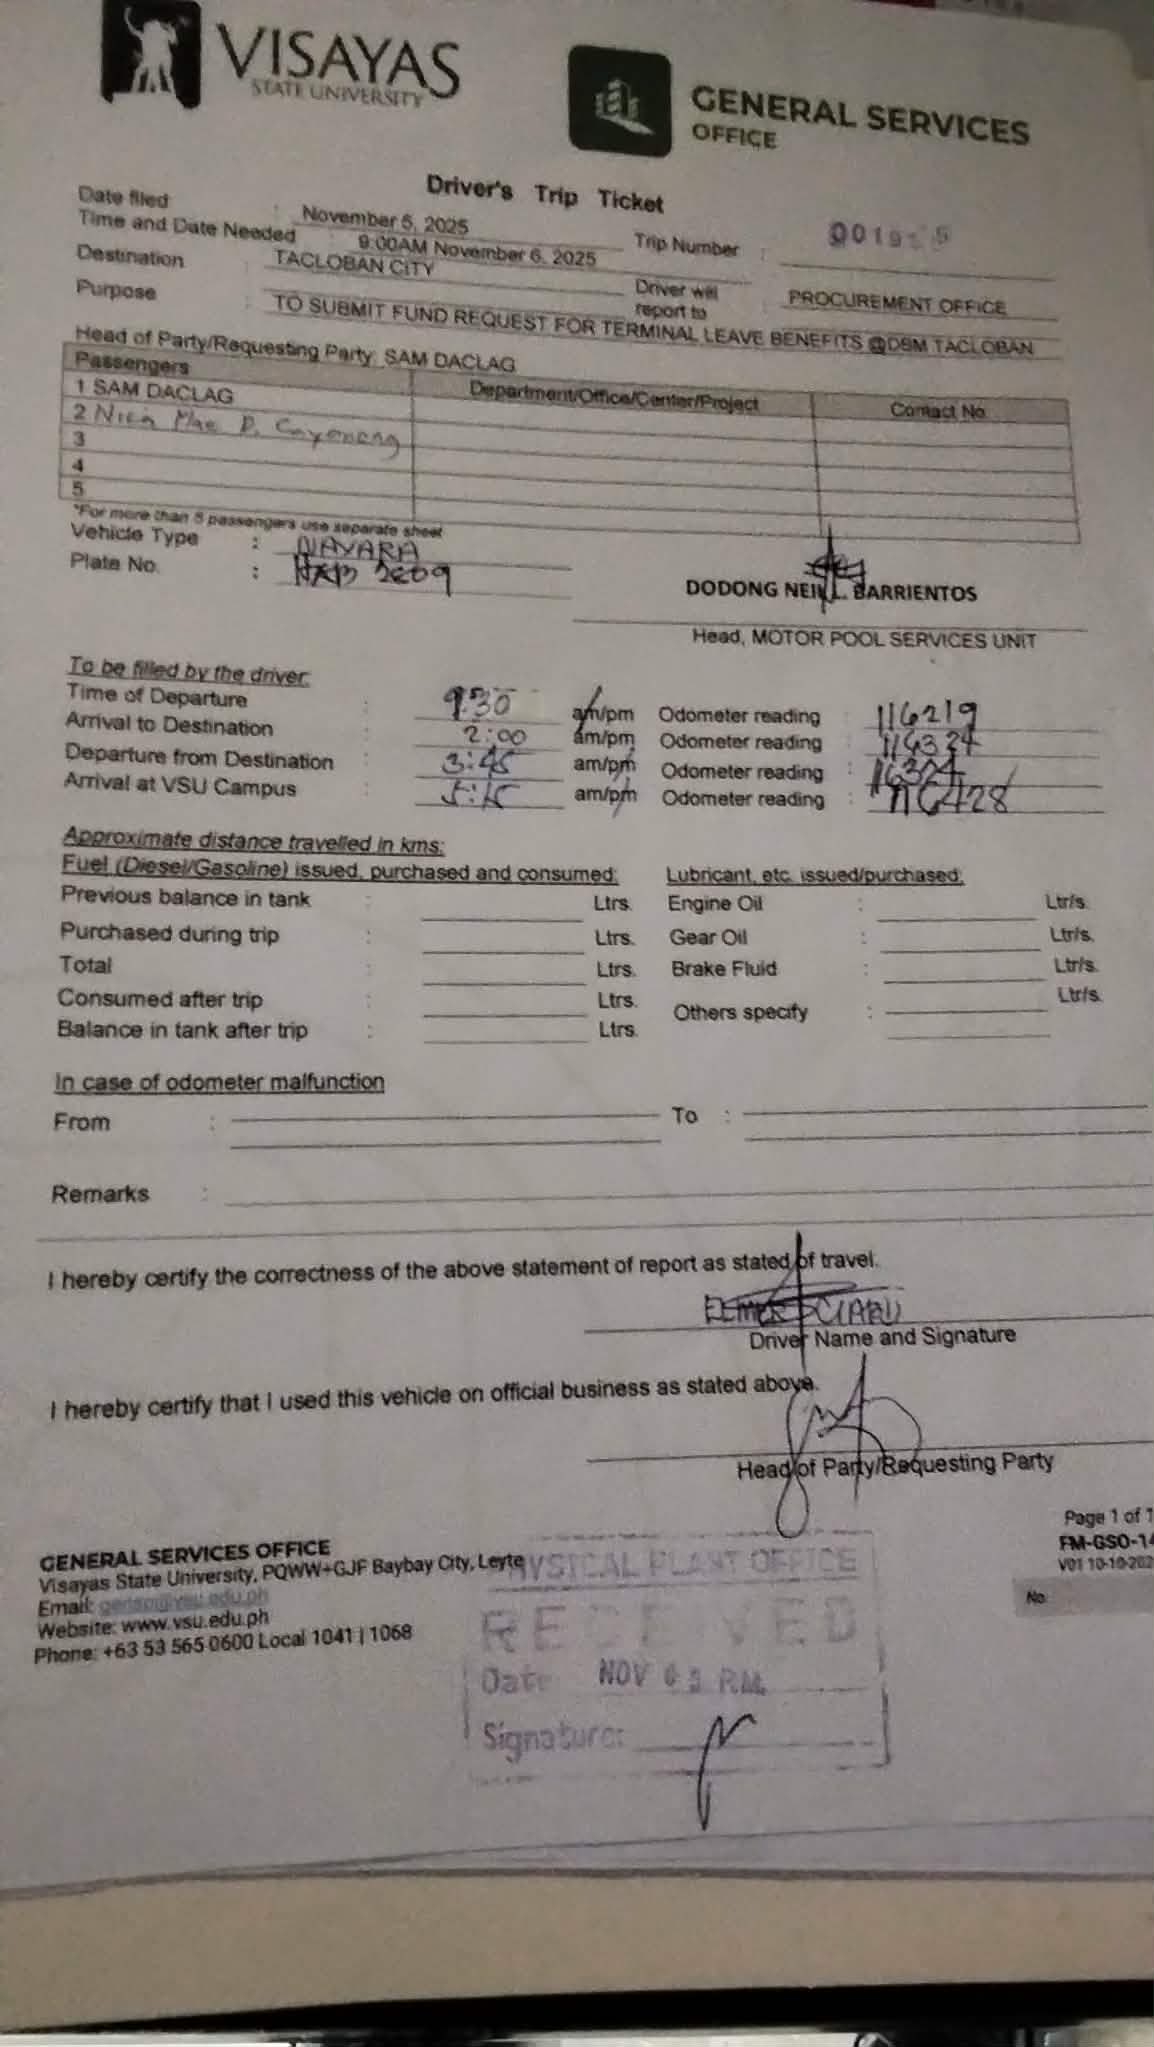 VISAYAS
STATE UNIVERSITY
GENERAL SERVICES
OFFICE
Driver's Trip Ticket
Date filed : November 5, 2025
Time and Date Needed : 9:00AM November 6, 2025 Trip Number :
Destination : TACLOBAN CITY Driver will report to : PROCUREMENT OFFICE
Purpose : TO SUBMIT FUND REQUEST FOR TERMINAL LEAVE BENEFITS @DBM TACLOBAN
Head of Party/Requesting Party: SAM DACLAG
Passengers Department/Office/Center/Project Contact No.
1 SAM DACLAG
2 Mae D.
3
4
5
*For more than 5 passengers use separate sheet
Vehicle Type : NAVARA
Plate No. :
DODONG NEIL L. BARRIENTOS
Head, MOTOR POOL SERVICES UNIT
To be filled by the driver:
Time of Departure : 9:30 am/pm Odometer reading : 116219
Arrival to Destination : 2:00 am/pm Odometer reading : 116324
Departure from Destination : 3:45 am/pm Odometer reading : 116324
Arrival at VSU Campus : 5:15 am/pm Odometer reading : 116428
Approximate distance travelled in kms:
Fuel (Diesel/Gasoline) issued, purchased and consumed: Lubricant, etc. issued/purchased:
Previous balance in tank : Ltrs. Engine Oil : Ltr/s.
Purchased during trip : Ltrs. Gear Oil : Ltr/s.
Total : Ltrs. Brake Fluid : Ltr/s.
Consumed after trip : Ltrs. Others specify : Ltr/s.
Balance in tank after trip : Ltrs.
In case of odometer malfunction
From : To :
Remarks :
I hereby certify the correctness of the above statement of report as stated of travel.
Driver Name and Signature
I hereby certify that I used this vehicle on official business as stated above.
Head of Party/Requesting Party
Page 1 of 1
FM-GSO-14
V01 10-10-202
No.
GENERAL SERVICES OFFICE
Visayas State University, PQWW+GJF Baybay City, Leyte
Email:
Website: www.vsu.edu.ph
Phone: +63 53 565 0600 Local 1041 | 1068
YSICAL PLANT OFFICE
RECEIVED
Date NOV
Signature: